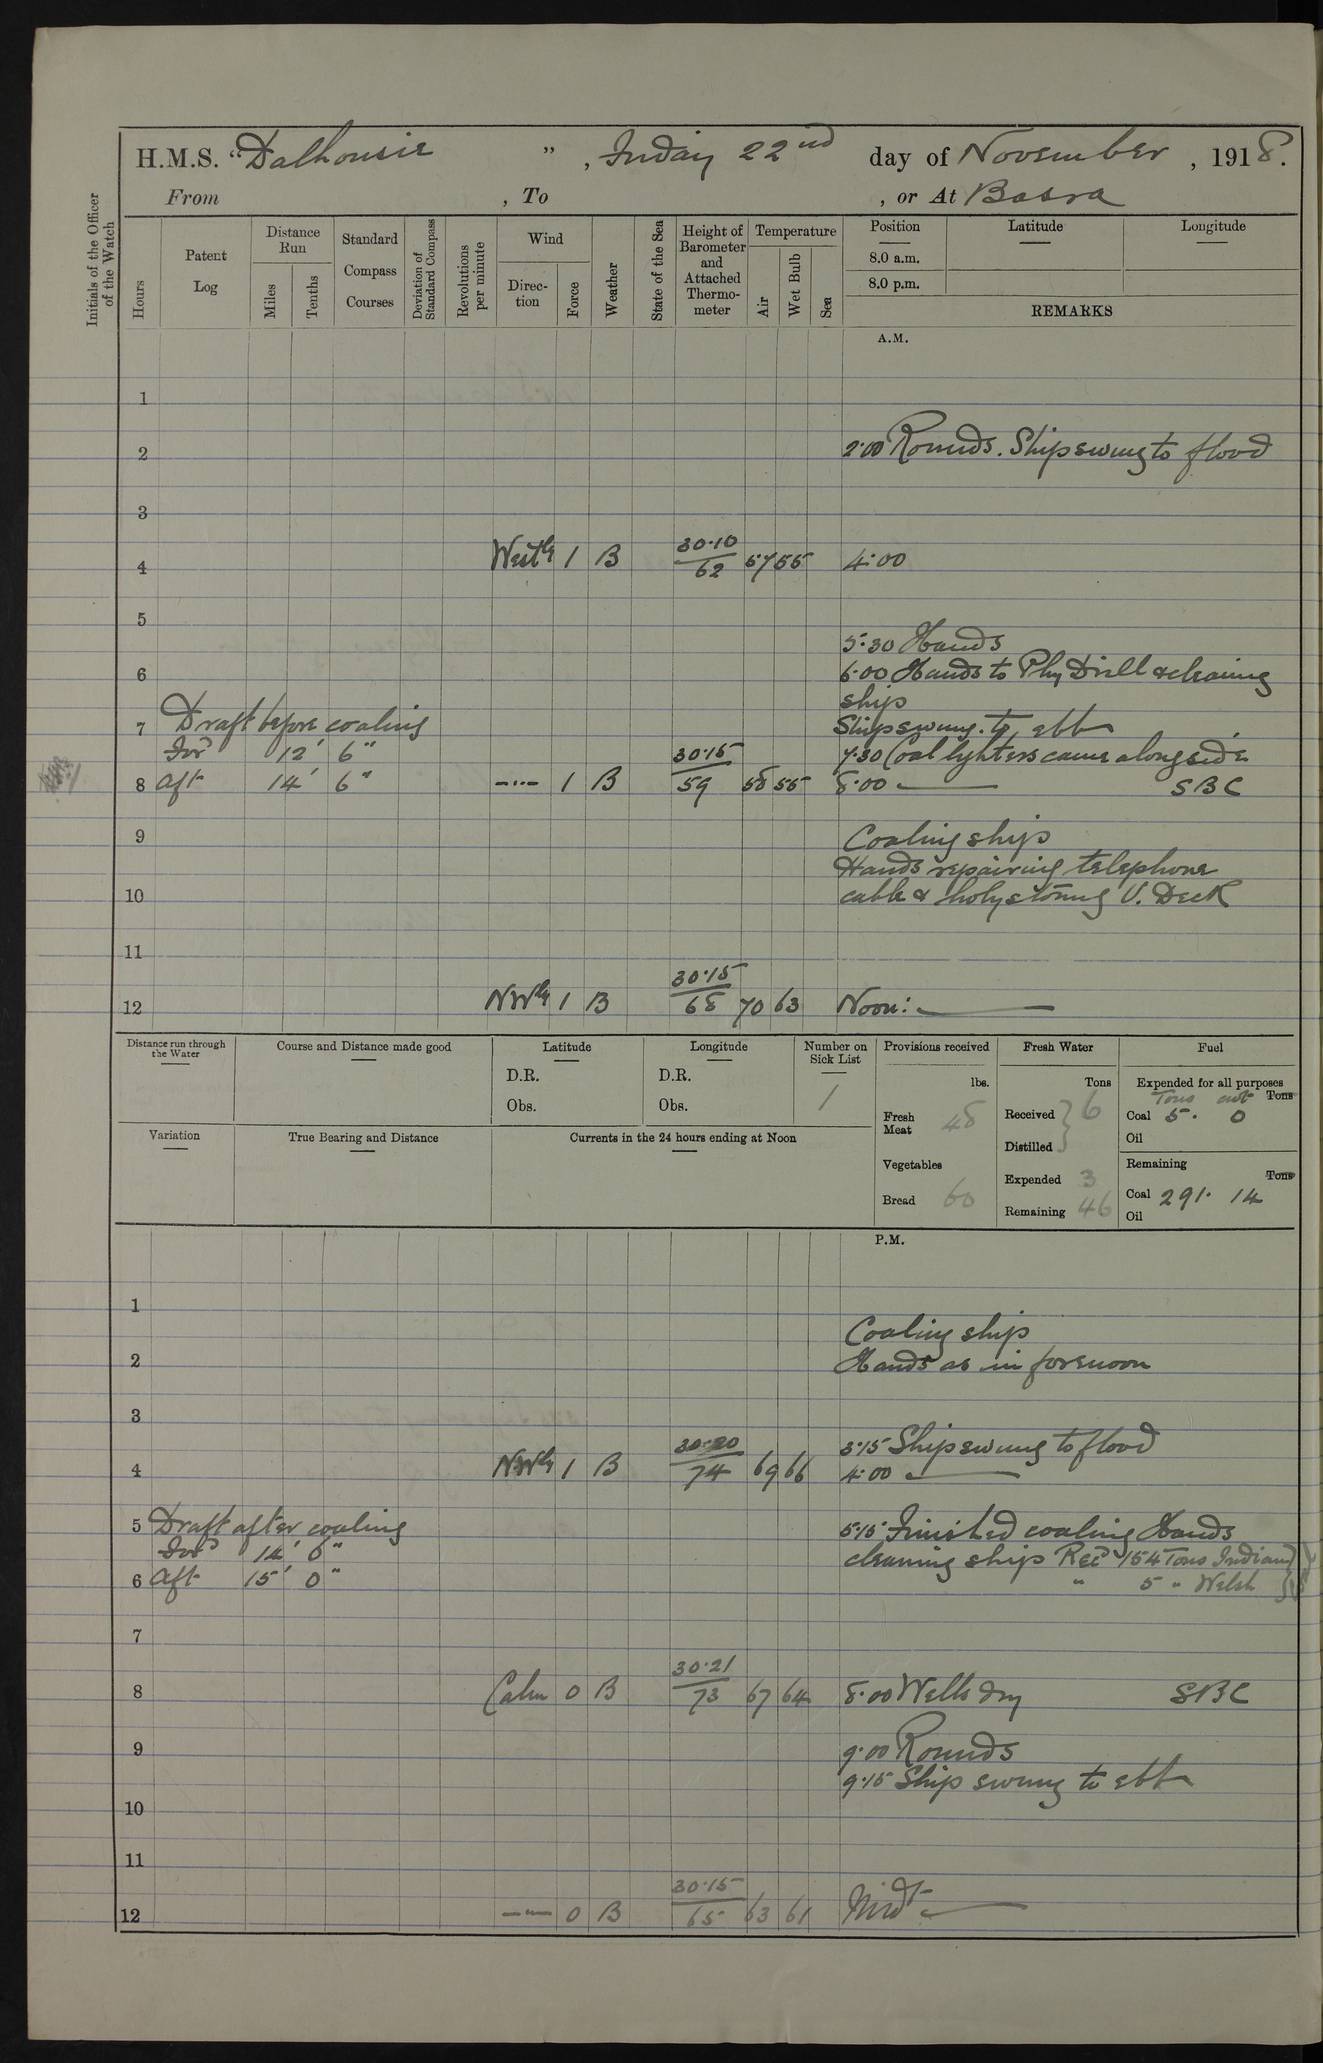 H.M.S. “Dalhousie ” , Friday 22nd day of November , 1918.
From , To , or At Basra
Initials of the Officer of the Watch
Hours
Patent Log
Distance Run
Miles
Tenths
Standard Compass Courses
Deviation of Standard Compass
Revolutions per minute
Wind
Direction
Force
Weather
State of the Sea
Height of Barometer and Attached Thermometer
Temperature
Air
Wet Bulb
Sea
Position Latitude Longitude
8.0 a.m.
8.0 p.m.
REMARKS
A.M.
1
2 2·00 Rounds. Ship swung to flood
3
30·10
4 Westly 1 B 62 57 55 4·00
5
5·30 Hands
6 6·00 Hands to Phy Drill & cleaning
ship
7 Draft before coaling Ship swung to ebb
For'd 12' 6" 30·15 7·30 Coal lighters came alongside
8 Aft 14' 6" —"— 1 B 59 58 55 8·00 SBC
9 Coaling ship
Hands repairing telephone
10 cable & holystoning U. Deck
11
30·15
12 NWly 1 B 68 70 63 Noon:
Distance run through the Water
Course and Distance made good
Latitude
D.R.
Obs.
Longitude
D.R.
Obs.
Number on Sick List
1
Provisions received
lbs.
Fresh Meat 48
Vegetables
Bread 60
Fresh Water
Tons
Received } 6
Distilled
Expended 3
Remaining 46
Fuel
Expended for all purposes
Tons cwt Tons
Coal 5. 0
Oil
Remaining
Tons
Coal 291. 14
Oil
Variation
True Bearing and Distance
Currents in the 24 hours ending at Noon
P.M.
1
Coaling ship
2 Hands as in forenoon
3
30·20 3·15 Ship swung to flood
4 NWly 1 B 74 69 66 4·00
5 Draft after coaling 5·15 Finished coaling Hands
For'd 14' 6" cleaning ship Rec'd 154 Tons Indian
6 Aft 15' 0" " 5 " Welsh
7
30·21
8 Calm 0 B 73 67 64 8·00 Wells dry SBC
9 9·00 Rounds
9·15 Ship swung to ebb
10
11
30·15
12 —"— 0 B 65 63 61 Midt